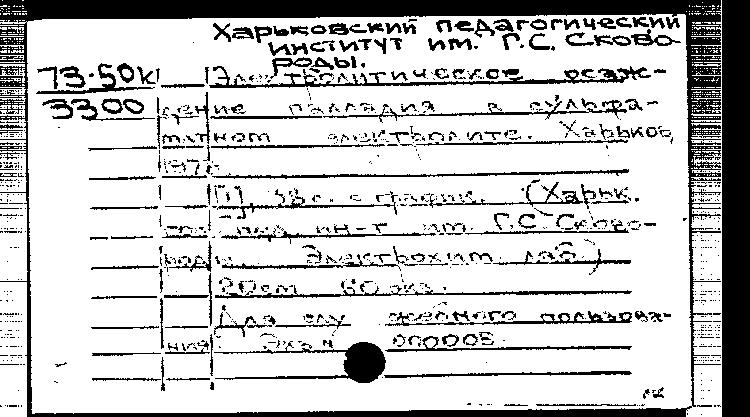 Харьковский педагогический
институт им. Г.С. Сково-
роды.
73-50к Электролитическое осаж-
3300 дение палладия в сульфа-
матном электролите. Харьков,
197
[1], 38 с. с график. (Харьк.
гос. пед. ин-т им. Г.С. Сково-
роды. Электрохим. лаб.)
20 см 60 экз.
Для служебного пользова-
ния. Экз. № 000005